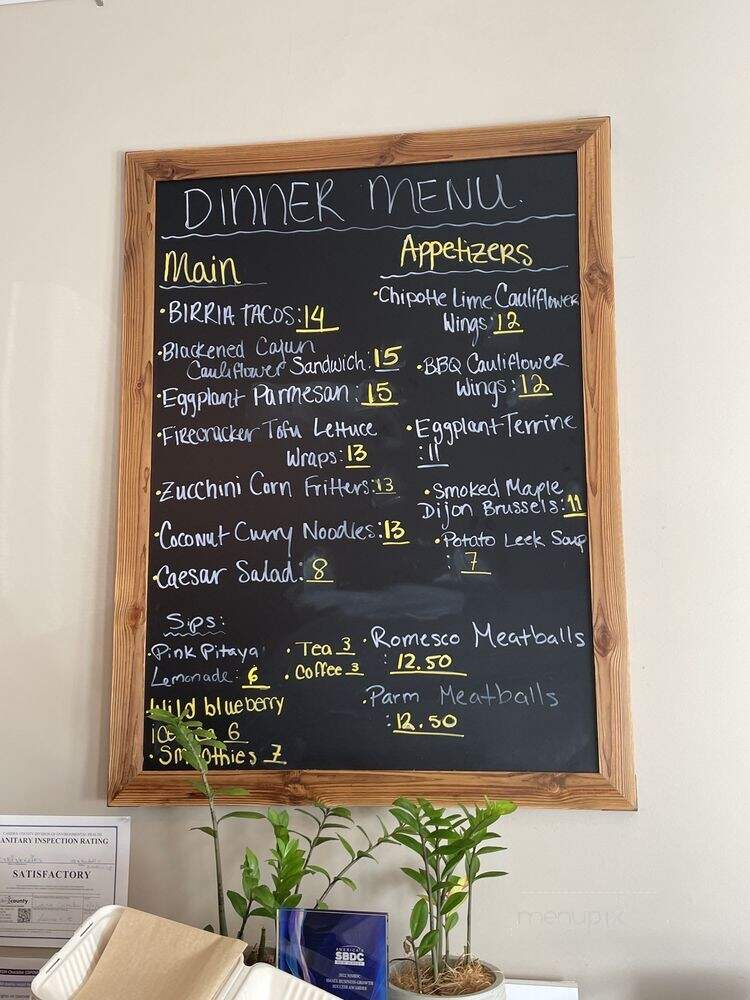 DINNER MENU.
Main
• BIRRIA TACOS: 14
• Blackened Cajun
Cauliflower Sandwich: 15
• Eggplant Parmesan: 15
• Firecracker Tofu Lettuce
Wraps: 13
• Zucchini Corn Fritters: 13
• Coconut Curry Noodles: 13
• Caesar Salad: 8
Appetizers
• Chipotle Lime Cauliflower
Wings: 12
• BBQ Cauliflower
Wings: 12
• Eggplant Terrine
: 11
• Smoked Maple
Dijon Brussels: 11
• Potato Leek Soup
: 7
• Romesco Meatballs
: 12.50
• Parm Meatballs
: 12.50
Sips:
• Pink Pitaya
Lemonade: 6
• Wild blueberry
6
• Smoothies 7
• Tea 3
• Coffee 3
CAMDEN COUNTY DIVISION OF ENVIRONMENTAL HEALTH
ANITARY INSPECTION RATING
SATISFACTORY
county
AMERICA'S
SBDC
NEW JERSEY
2022 NJSBDC
SMALL BUSINESS GROWTH
SUCCESS AWARDEE
menupix